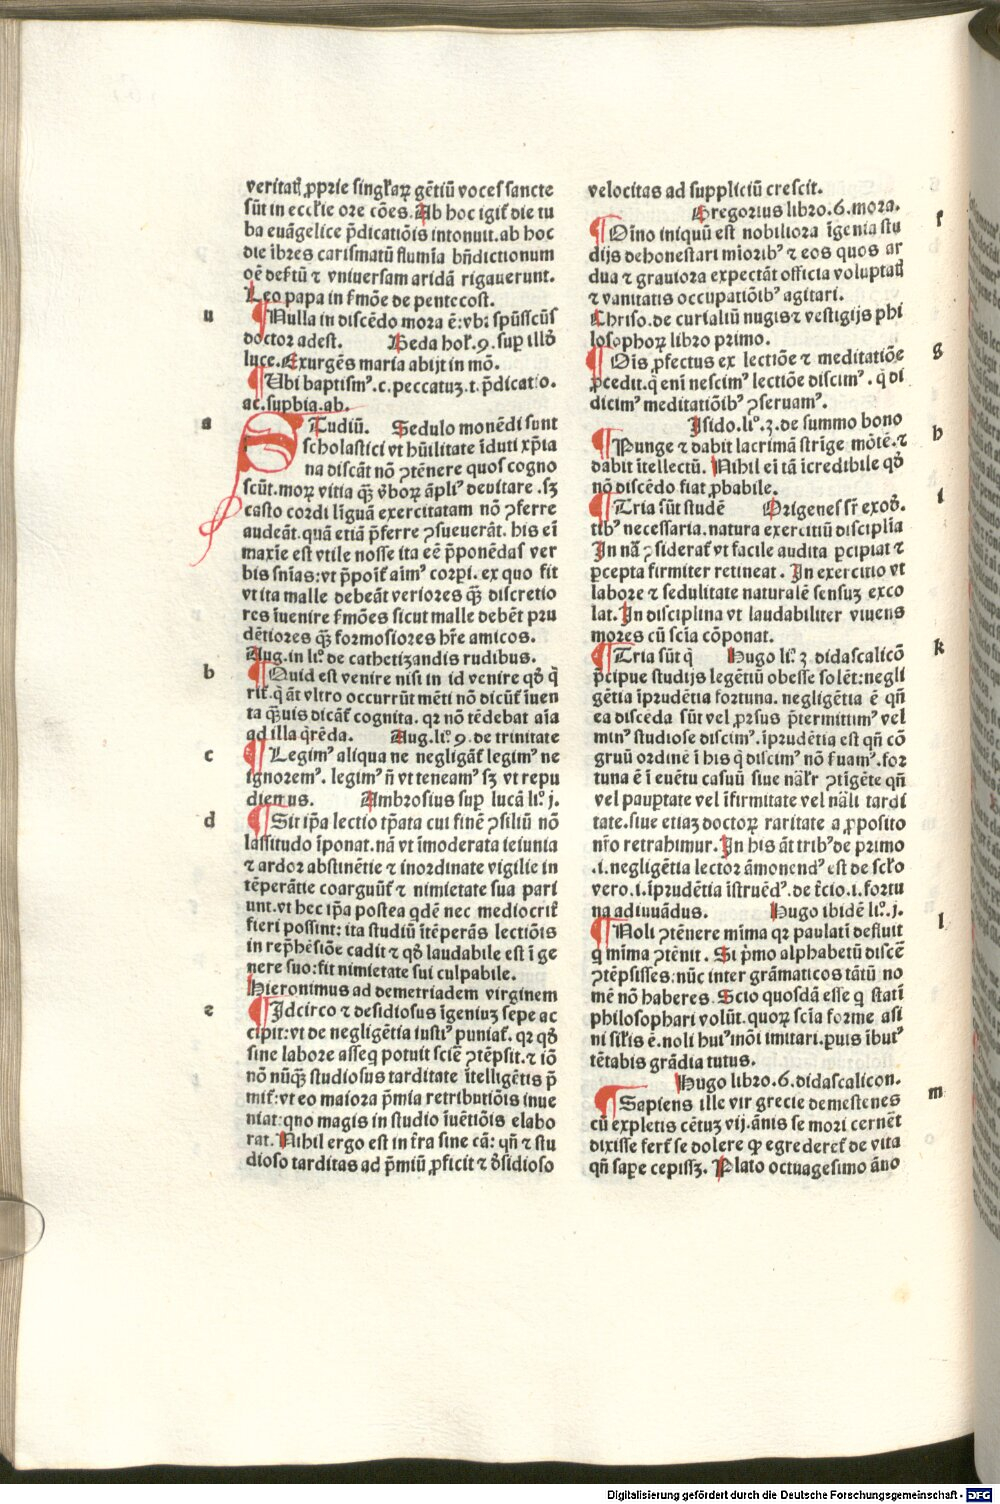 veritatꝭ ꝓprie singl'aꝝ gẽtiũ voces sancte
sũt in eccl'ie ore cões. Ab hoc igit̃ die tu
ba euãgelice p̃dicatiõis intonuit. ab hoc
die ĩbres carismatũ flumĩa bñdictionum
oẽ def̃tũ ⁊ vniuersam aridã rigauerunt.
Leo papa in f̃mõe de pentecost.
u
¶ Nulla in discẽdo mora ẽ: vbi sp̃ussc̃us
doctor adest. Beda hoł. 9. sup illð
luce. Exurgẽs maria abijt in mõ.
¶ Ubi baptism᾽. c. peccatuʒ. t. p̃dicatio.
ac. supbia. ab.
a
STudiũ. Sedulo monẽdi sunt
scholastici vt hũilitate ĩduti xp̃ia
na discãt nõ ꝯtẽnere quos cogno
scũt. moꝝ vitia q̃ʒ v̓boꝝ ãpli᾽ deuitare. sʒ
casto cordi lĩguã exercitatam nõ ꝯferre
audeãt. quã etiã p̃ferre ꝯsueuerãt. his eĩ
maxĩe est vtile nosse ita eẽ p̃ponẽdas ver
bis sñias: vt p̃poĩt̃ aĩm᾽ corpi. ex quo fit
vt ita malle debeãt veriores q̃ʒ discretio
res ĩuenire f̃mões sicut malle debẽt pru
dẽtiores q̃ʒ formosiores hr̃e amicos.
Aug. in liº. de cathetizandis rudibus.
b
¶ Quid est venire nisi in id venire qð q̃
rit̃. q̃ ãt vltro occurrũt mẽti nõ dicũt̃ ĩuen
ta q̃ʒuis dicãt̃ cognita. qꝛ nõ tẽdebat aĩa
ad illa q̃rẽda. Aug. liº. 9. de trinitate
c
¶ Legim᾽ aliqua ne negligãt̃ legim᾽ ne
ignorem᾽. legim᾽ ñ vt teneam᾽ sʒ vt repu
diemus. Ambrosius sup lucã liº. j.
d
¶ Sit ip̃a lectio tp̃ata cui finẽ ꝯsiliũ nõ
lassitudo ĩponat. nã vt ĩmoderata ieiunia
⁊ ardor abstinẽtie ⁊ inordinate vigilie in
tẽperãtie coarguũt̃ ⁊ nimietate sua pari
unt. vt hec ip̃a postea qdẽ nec mediocrit̃
fieri possint: ita studiũ ĩtẽperãs lectiõis
in rep̃hẽsiõe cadit ⁊ qð laudabile est ĩ ge
nere suo: fit nimietate sui culpabile.
Hieronimus ad demetriadem virginem
e
¶ Idcirco ⁊ desidiosus ĩgeniuʒ sepe ac
cipit: vt de negligẽtia iusti᾽ puniat̃. qꝛ qð
sine labore asseq̃ potuit scĩe ꝯtẽpsit. ⁊ iõ
nõ nũq̃ʒ studiosus tarditate ĩtelligẽtis p̃
mit̃: vt eo maiora p̃mia retributiõis inue
niat: quo magis in studio ĩuẽtiõis elabo
rat. Nihil ergo est in f̃ra sine cã: qñ ⁊ stu
dioso tarditas ad p̃miũ ꝓficit ⁊ ð̓sidioso
velocitas ad suppliciũ crescit.
Gregorius libro. 6. mora.
f
¶ Oĩno iniquũ est nobiliora ĩgenia stu
dijs dehonestari miorib᾽ ⁊ eos quos ar
dua ⁊ grauiora expectãt officia voluptatꝭ
⁊ vanitatis occupatiõib᾽ agitari.
Chriso. de curialiũ nugis ⁊ vestigijs phi
losophoꝝ libro primo.
g
¶ Oĩs ꝓfectus ex lectiõe ⁊ meditatiõe
ꝓcedit. q̃ enĩ nescim᾽ lectiõe discim᾽. q̃ di
dicim᾽ meditatiõib᾽ ꝯseruam᾽.
Isido. liº. 3. de summo bono
h
¶ Punge ⁊ dabit lacrimã strĩge mõtẽ. ⁊
dabit ĩtellectũ. Nihil eĩ tã ĩcredibile qð
nõ discẽdo fiat ꝓbabile.
i
¶ Tria sũt studẽ Origenes sr̃ exoð.
tib᾽ necessaria. natura exercitiũ disciplĩa
In nã ꝯsiderat̃ vt facile audita ꝑcipiat ⁊
ꝑcepta firmiter retineat. In exercitio vt
labore ⁊ sedulitate naturalẽ sensuʒ exco
lat. In disciplina vt laudabiliter viuens
mores cũ scĩa cõponat.
k
¶ Tria sũt q̃ Hugo liº. 3 didascalicõ
p̃cipue studijs legẽtiũ obesse solẽt: negli
gẽtia ĩprudẽtia fortuna. negligẽtia ẽ qñ
ea discẽda sũt vel ꝓrsus p̃termittim᾽ vel
min᾽ studiose discim᾽. ĩprudẽtia est qñ cõ
gruũ ordinẽ ĩ his q̃ discim᾽ nõ f̃uam᾽. for
tuna ẽ ĩ euẽtu casuũ siue nãlr̃ ꝯtĩgẽte qñ
vel paupertate vel ĩfirmitate vel nãli tardi
tate. siue etiaʒ doctoꝝ raritate a ꝓposito
nr̃o retrahimur. In his ãt trib᾽ de primo
.i. negligẽtia lector ãmonend᾽ est de scðo
vero. i. ĩprudẽtia ĩstruẽd᾽. de t̃cio. i. fortu
na adiuuãdus. Hugo ibidẽ liº. j.
l
¶ Noli ꝯtẽnere mĩma qꝛ paulatĩ defluit
q mĩma ꝯtẽnit. Si p̃mo alphabetũ discẽ
ꝯtẽpsisses: nũc inter grãmaticos tãtũ no
mẽ nõ haberes. Scio quosdã esse q statĩ
philosophari volũt. quoꝝ scĩa forme asi
ni sił'is ẽ. noli hui᾽ mõi imitari. ꝑuis ĩbut᾽
tẽtabis grãdia tutus.
Hugo libro. 6. didascalicon.
m
¶ Sapiens ille vir grecie demestenes
cũ expletis cẽtuʒ vij. ãnis se mori cernẽt
dixisse fert̃ se dolere ꝙ egrederet̃ de vita
qñ saꝑe cepissʒ. Plato octuagesimo ãno
Digitalisierung gefördert durch die Deutsche Forschungsgemeinschaft - DFG